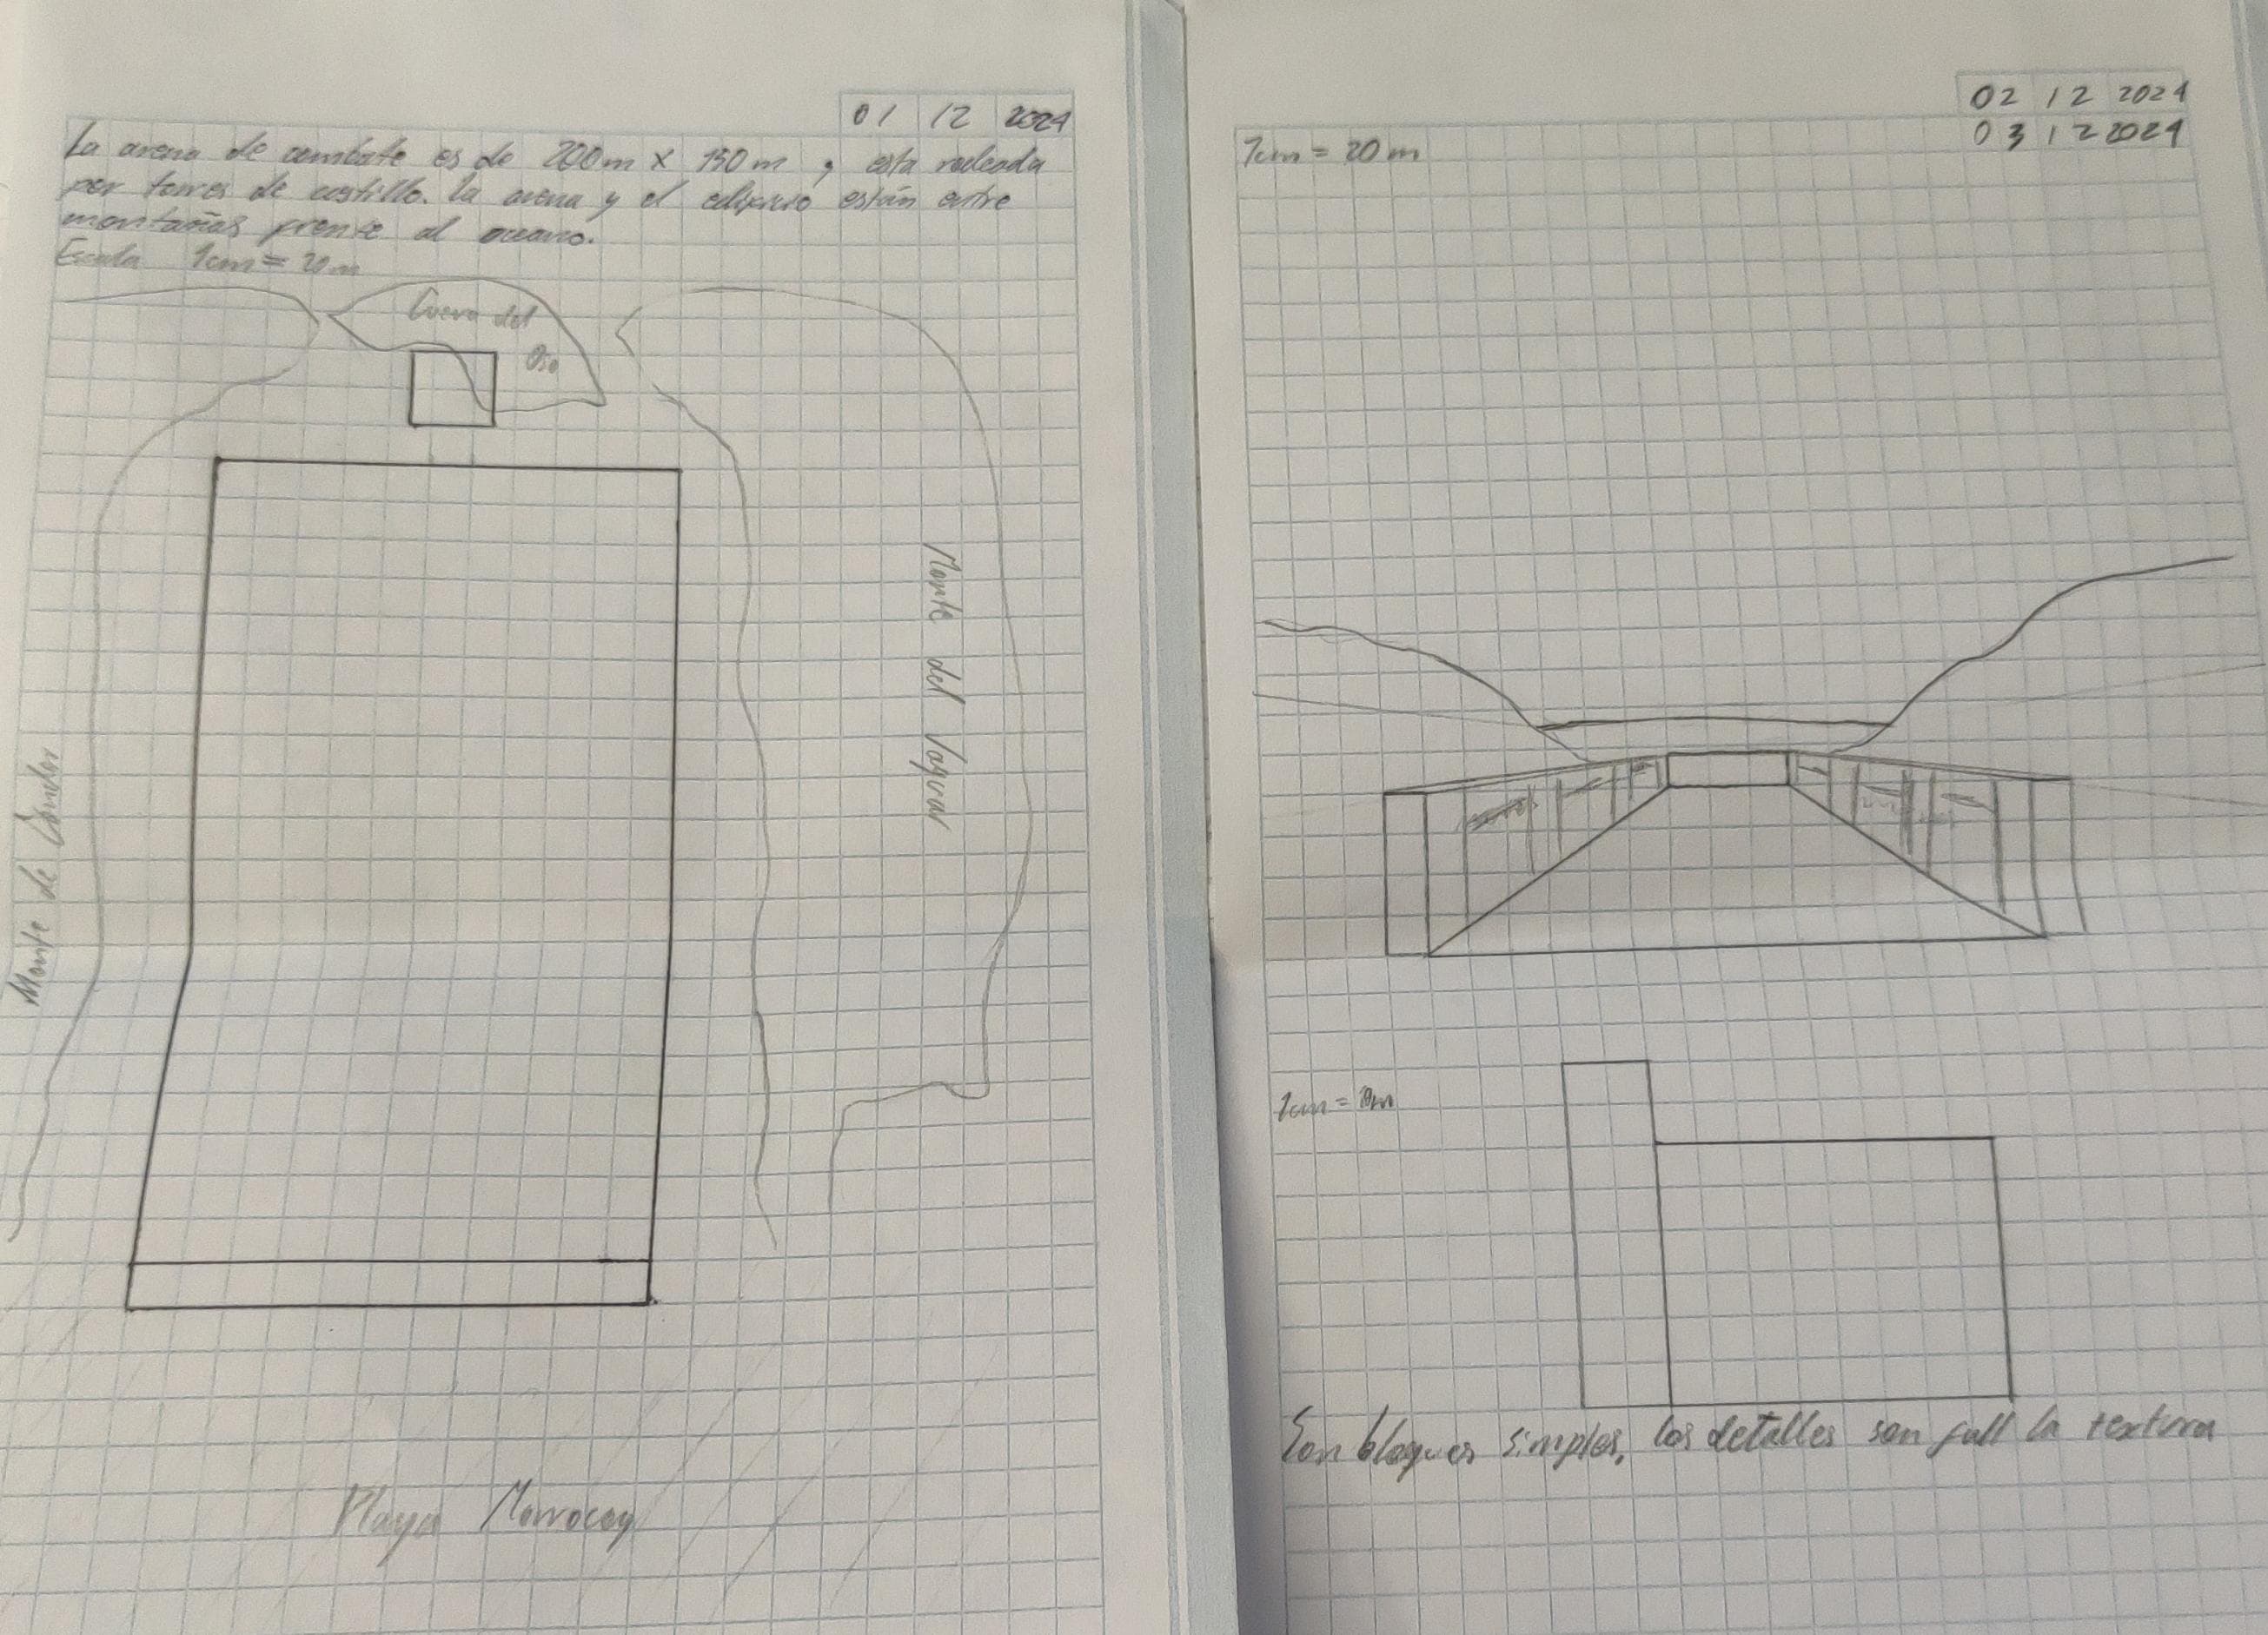 01 12 2024
La arena de combate es de 200m x 150m, esta rodeada
por torres de castillo. la arena y el edificio están entre
montañas frente al oceano.
Escala 1cm = 20m
Cueva del
Oso
Monte de Condor
Monte del Jaguar
Playa Morrocoy
02 12 2024
03 12 2024
1cm = 20m
1cm =
Son bloques simples, los detalles son full la textura